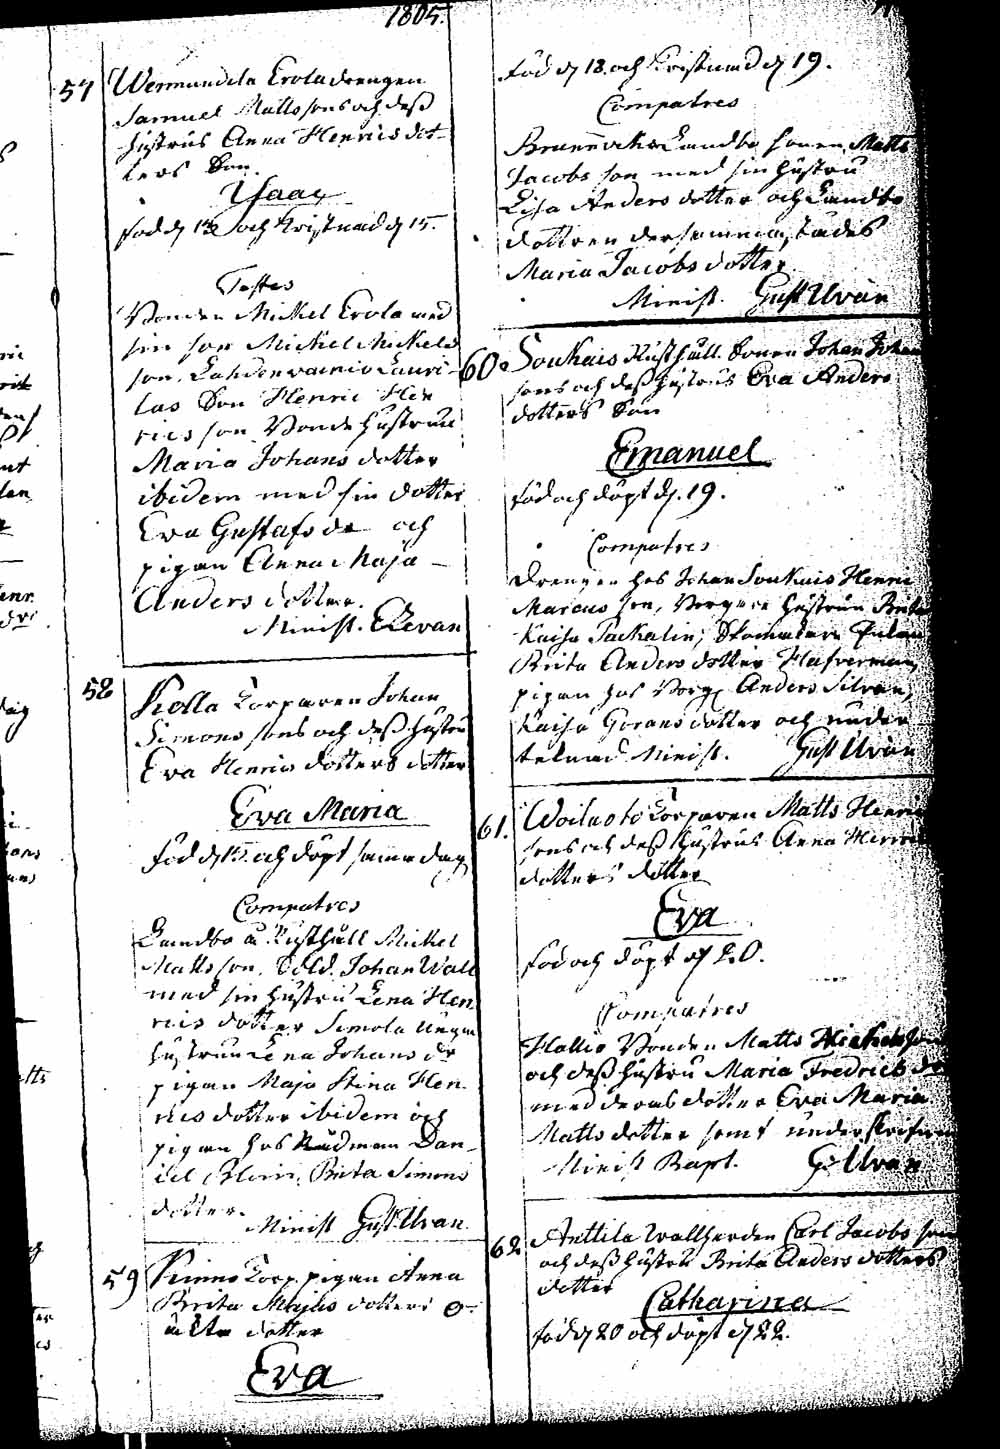 1805.
57 Wermundila Erola drengen
Samuel Mattssons och deß
hustrus Anna Henrics dot-
ters Son
Isaac
född d 13 och Kristnad d 15.
Testes
Bonden Mickel Erola med
sin son Michel Mickels
son, Lahdenvainio Lauri-
las Son Henric Hen
rics son Bonde hustrun
Maria Johans dotter
ibidem med sin dotter
Eva Gustafs dr och
pigan Anna Maja
Anders dotter.
Minist. Elevan
58 Kolla Torparen Johan
Simons sons och deß hustru
Eva Henrics dotters dotter
Eva Maria
Född d 15 och döpt samma dag
Compatres
Landbo å Rusthåll Mickel
Matts son, Sold. Johan Wall
med sin hustru Lena Hen
rics dotter Simola unga
hustrun Lena Johans dr
pigan Maja Stina Hen-
rics dotter ibidem och
pigan hos Rådman Dan-
iel Brita Simons
dotter.
Minist Gust. Uvan
59 Kinno Torp. pigan Anna
Brita Majas dotters o-
äkta dotter
Eva
Född d 18. och Kristnad d 19.
Compatres
Landbo sonen Matts
Jacobs son med sin hustru
Lisa Anders dotter och Landbo
dottren dersammastädes
Maria Jacobs dotter
Minist. Gust Uvan
60. Soukais Rusthåll. Sonen Johan Johan
sons och deß hustrus Eva Anders
dotters Son
Emanuel
född och döpt d. 19.
Compatres
Drengen hos Johan Soukais Henric
Marcus son, Borgare hustrun Brita
Kaisa Tackalin, Skomakare Enkan
Brita Anders dotter
pigan hos Borg. Anders Silvan,
Kaisa Görans dotter och under
teknad Minist. Gust Uvan
61. Woiluoto Torparen Matts Henric
sons och deß hustrus Anna Henrics
dotters dotter
Eva
född och döpt d 20.
Compatres
Hallio Bonden Matts Michels son
och deß hustru Maria Fredrics dr
med deras dotter Eva Maria
Matts dotter samt underskrefven
Minist Bapt. G. Uvan
62 Anttila Wallherden Carl Jacobs son
och deß hustru Brita Anders dotters
dotter
Catharina
född 20 och döpt d 22.